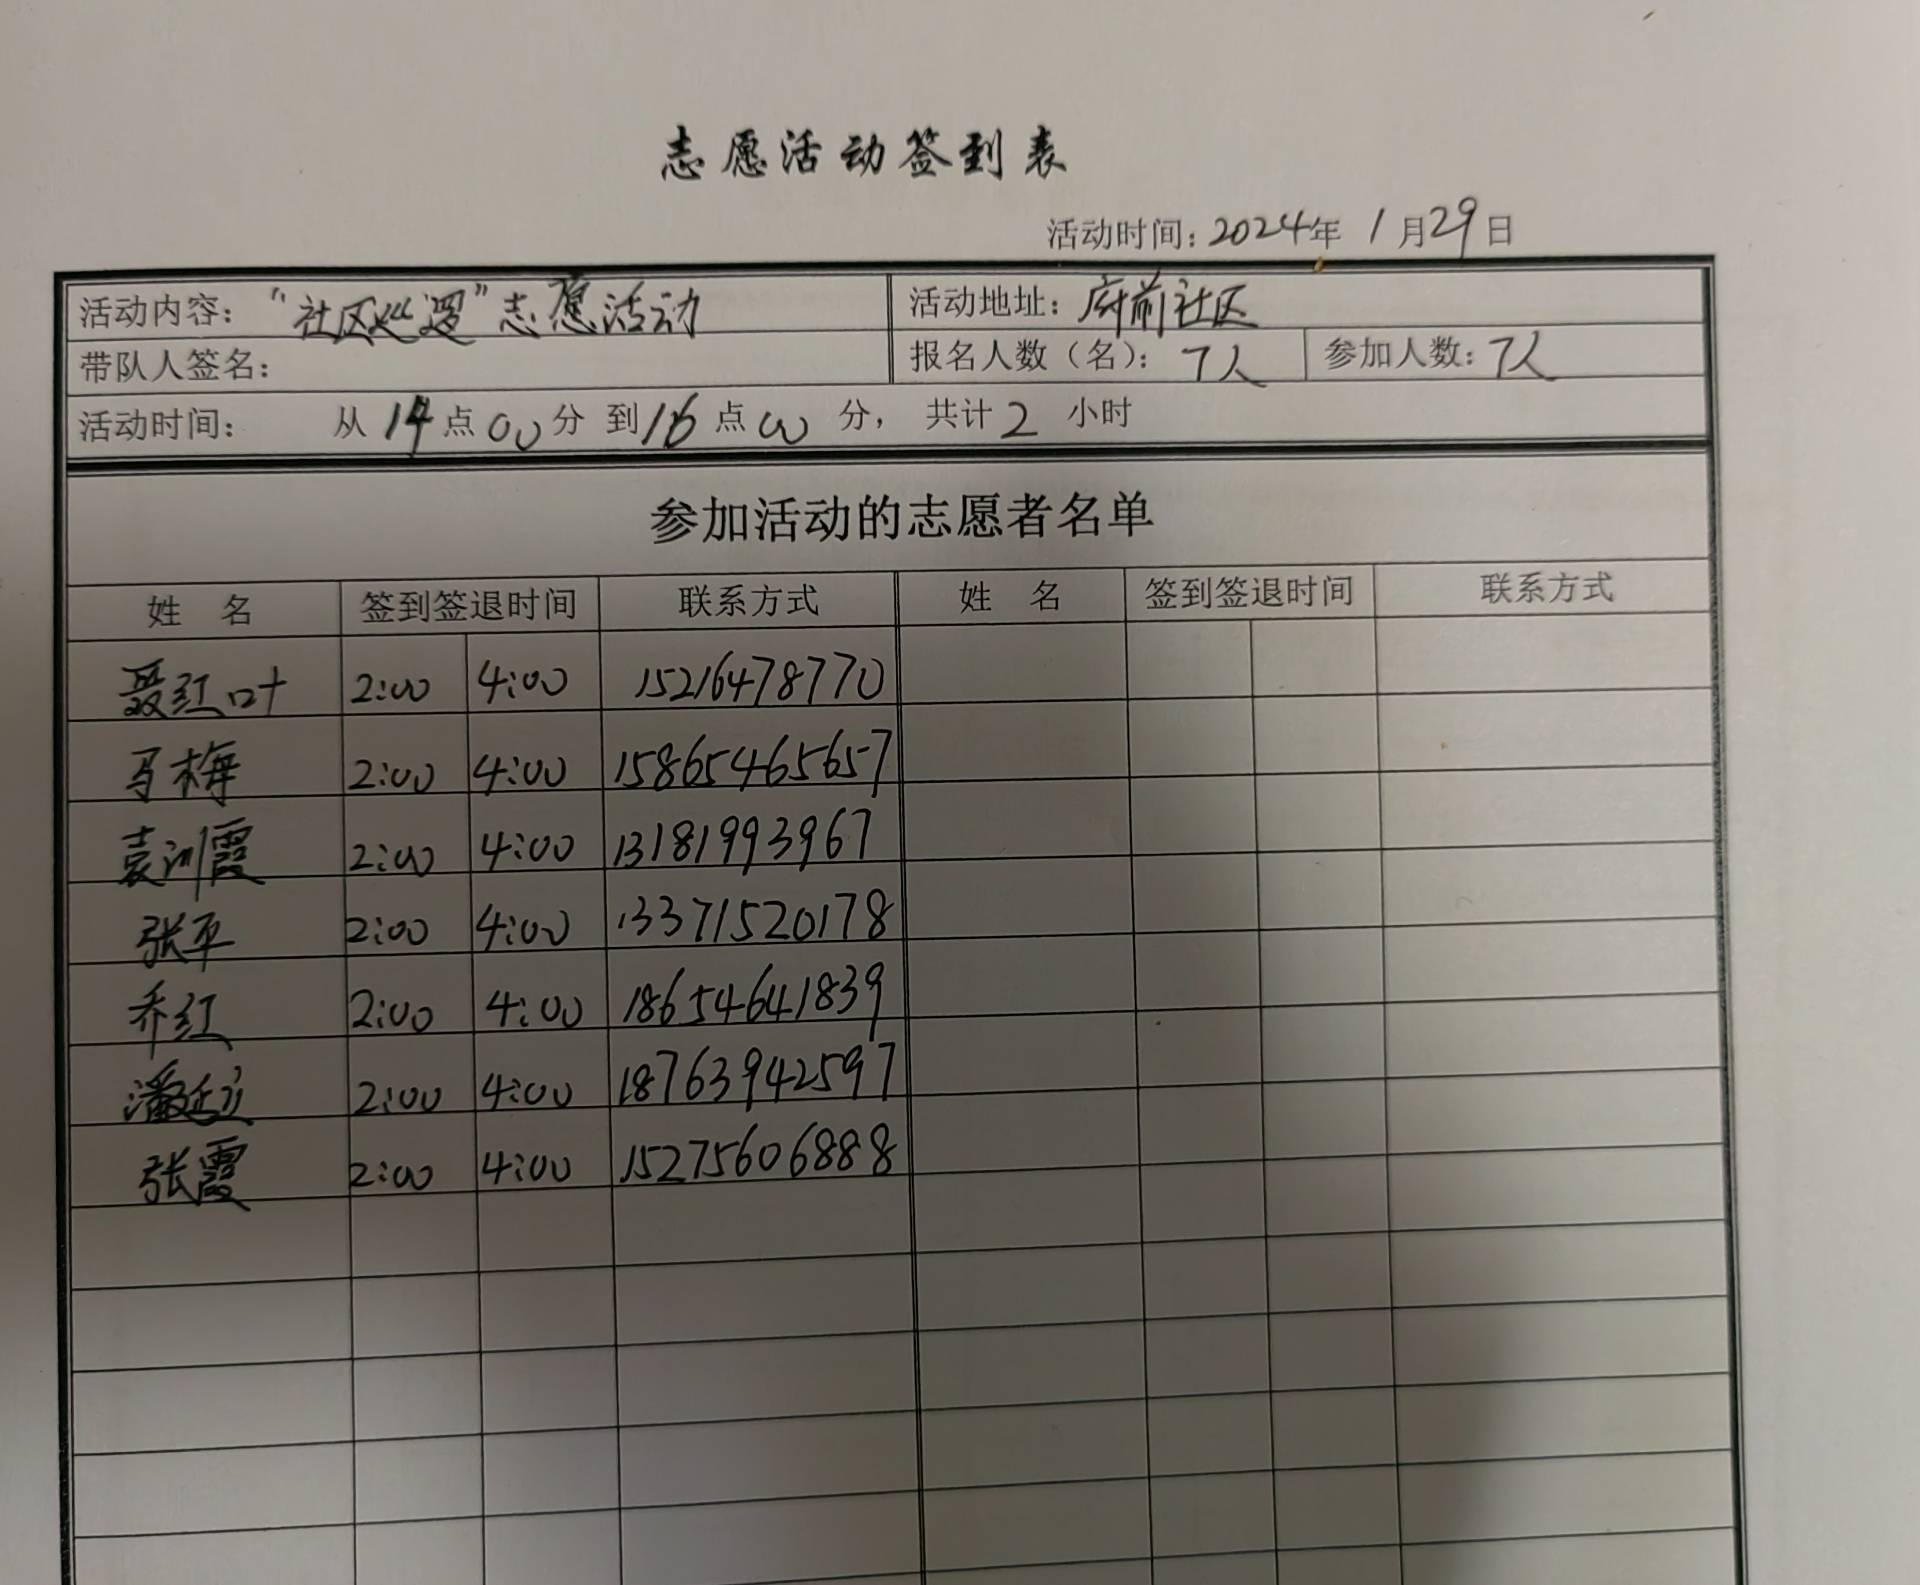 志愿活动签到表
活动时间：2024年 1月29日
活动内容："社区巡逻"志愿活动 活动地址：府前社区
带队人签名： 报名人数（名）：7人 参加人数：7人
活动时间： 从14点00分 到16点00分， 共计2小时
参加活动的志愿者名单
姓 名 签到签退时间 联系方式 姓 名 签到签退时间 联系方式
聂红叶 2:00 4:00 15216478770
马梅 2:00 4:00 15865465657
袁训霞 2:00 4:00 13181993967
张平 2:00 4:00 13371520178
乔红 2:00 4:00 18654641839
潘 2:00 4:00 18763942597
张霞 2:00 4:00 15275606888